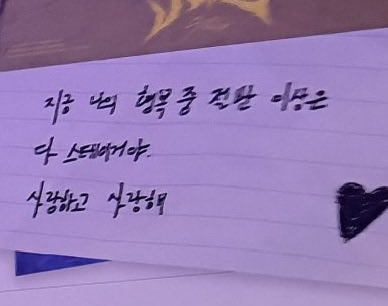 지금 나의 행복 중 절반 이상은
다 스테이거야.
사랑하고 사랑해